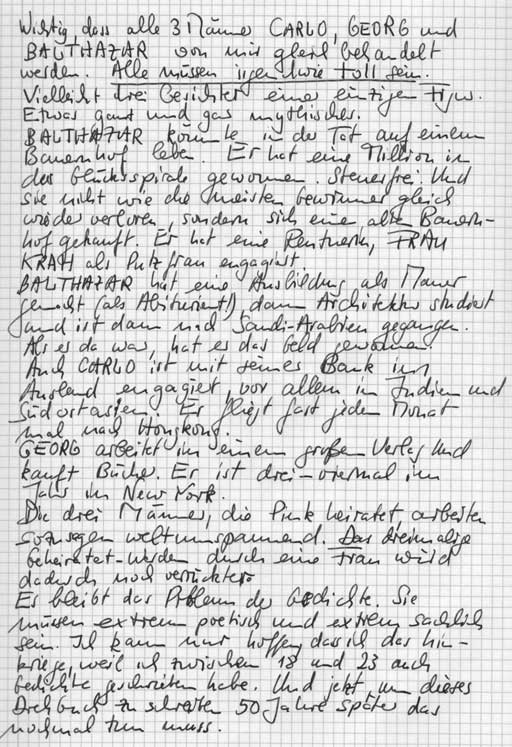 Wichtig, dass alle 3 Männer CARLO, GEORG und
BALTHAZAR von mir gleich behandelt
werden. Alle müssen irgendwie toll sein.
Vielleicht drei Gesichter einer einzigen Figur.
Etwas ganz und gar mythisches.
BALTHAZAR könnte in der Tat auf einem
Bauernhof leben. Er hat eine Million in
der Glücksspirale gewonnen. Steuerfrei. Und
sie nicht wie die meisten Gewinner gleich
wieder verloren, sondern sich eine alten Bauern-
hof gekauft. Er hat eine Rentnerin, FRAU
KRAH als Putzfrau engagiert.
BALTHAZAR hat eine Ausbildung als Maurer
gemacht (als Abiturient!) dann Architektur studiert
und ist dann nach Saudi-Arabien gegangen.
Als er da war, hat er das Geld gewonnen.
Auch CARLO ist mit seiner Bank im
Ausland engagiert, vor allem in Indien und
Südostasien. Er fliegt fast jeden Monat
mal nach Hongkong.
GEORG arbeitet in einem großen Verlag und
kauft Bücher. Er ist drei-viermal im
Jahr in New York.
Die drei Männer, die Pink heiratet, arbeiten
sozusagen weltumspannend. Das dreimalige
Geheiratet-Werden durch eine Frau wird
dadurch noch verrückter.
Es bleibt das Problem der Gedichte. Sie
müssen extrem poetisch und extrem sachlich
sein. Ich kann nur hoffen, dass ich das hin-
kriege, weil ich zwischen 18 und 23 auch
Gedichte geschrieben habe. Und jetzt um dieses
Drehbuch zu schreiben 50 Jahre später das
nochmal tun muss.